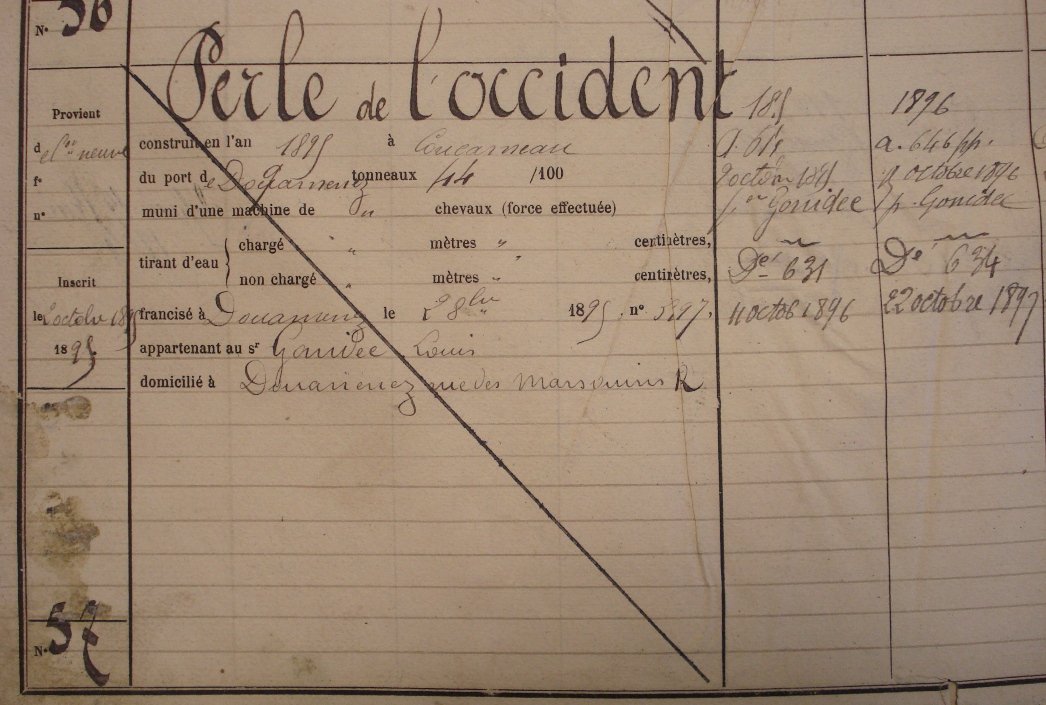 N° 56
Perle de l'occident
Provient
d
f°
n°
Inscrit
le 2 octobre 1895
1895
construit en l'an 1895 à Concarneau
du port de Douarnenez tonneaux 44 /100
muni d'une machine de " chevaux (force effectuée)
tirant d'eau
chargé " mètres " centimètres,
non chargé " mètres " centimètres,
francisé à Douarnenez le 28 1895 n°
appartenant au sr Gonidec Louis
domicilié à Douarnenez rue des Marsouins R
N° 57
1895
2 octobre 1895
Gonidec
Dé 631
11 octob 1896
1896
a. 646 pp.
octobre 1896
p. Gonidec
Dé 634
22 octobre 1897